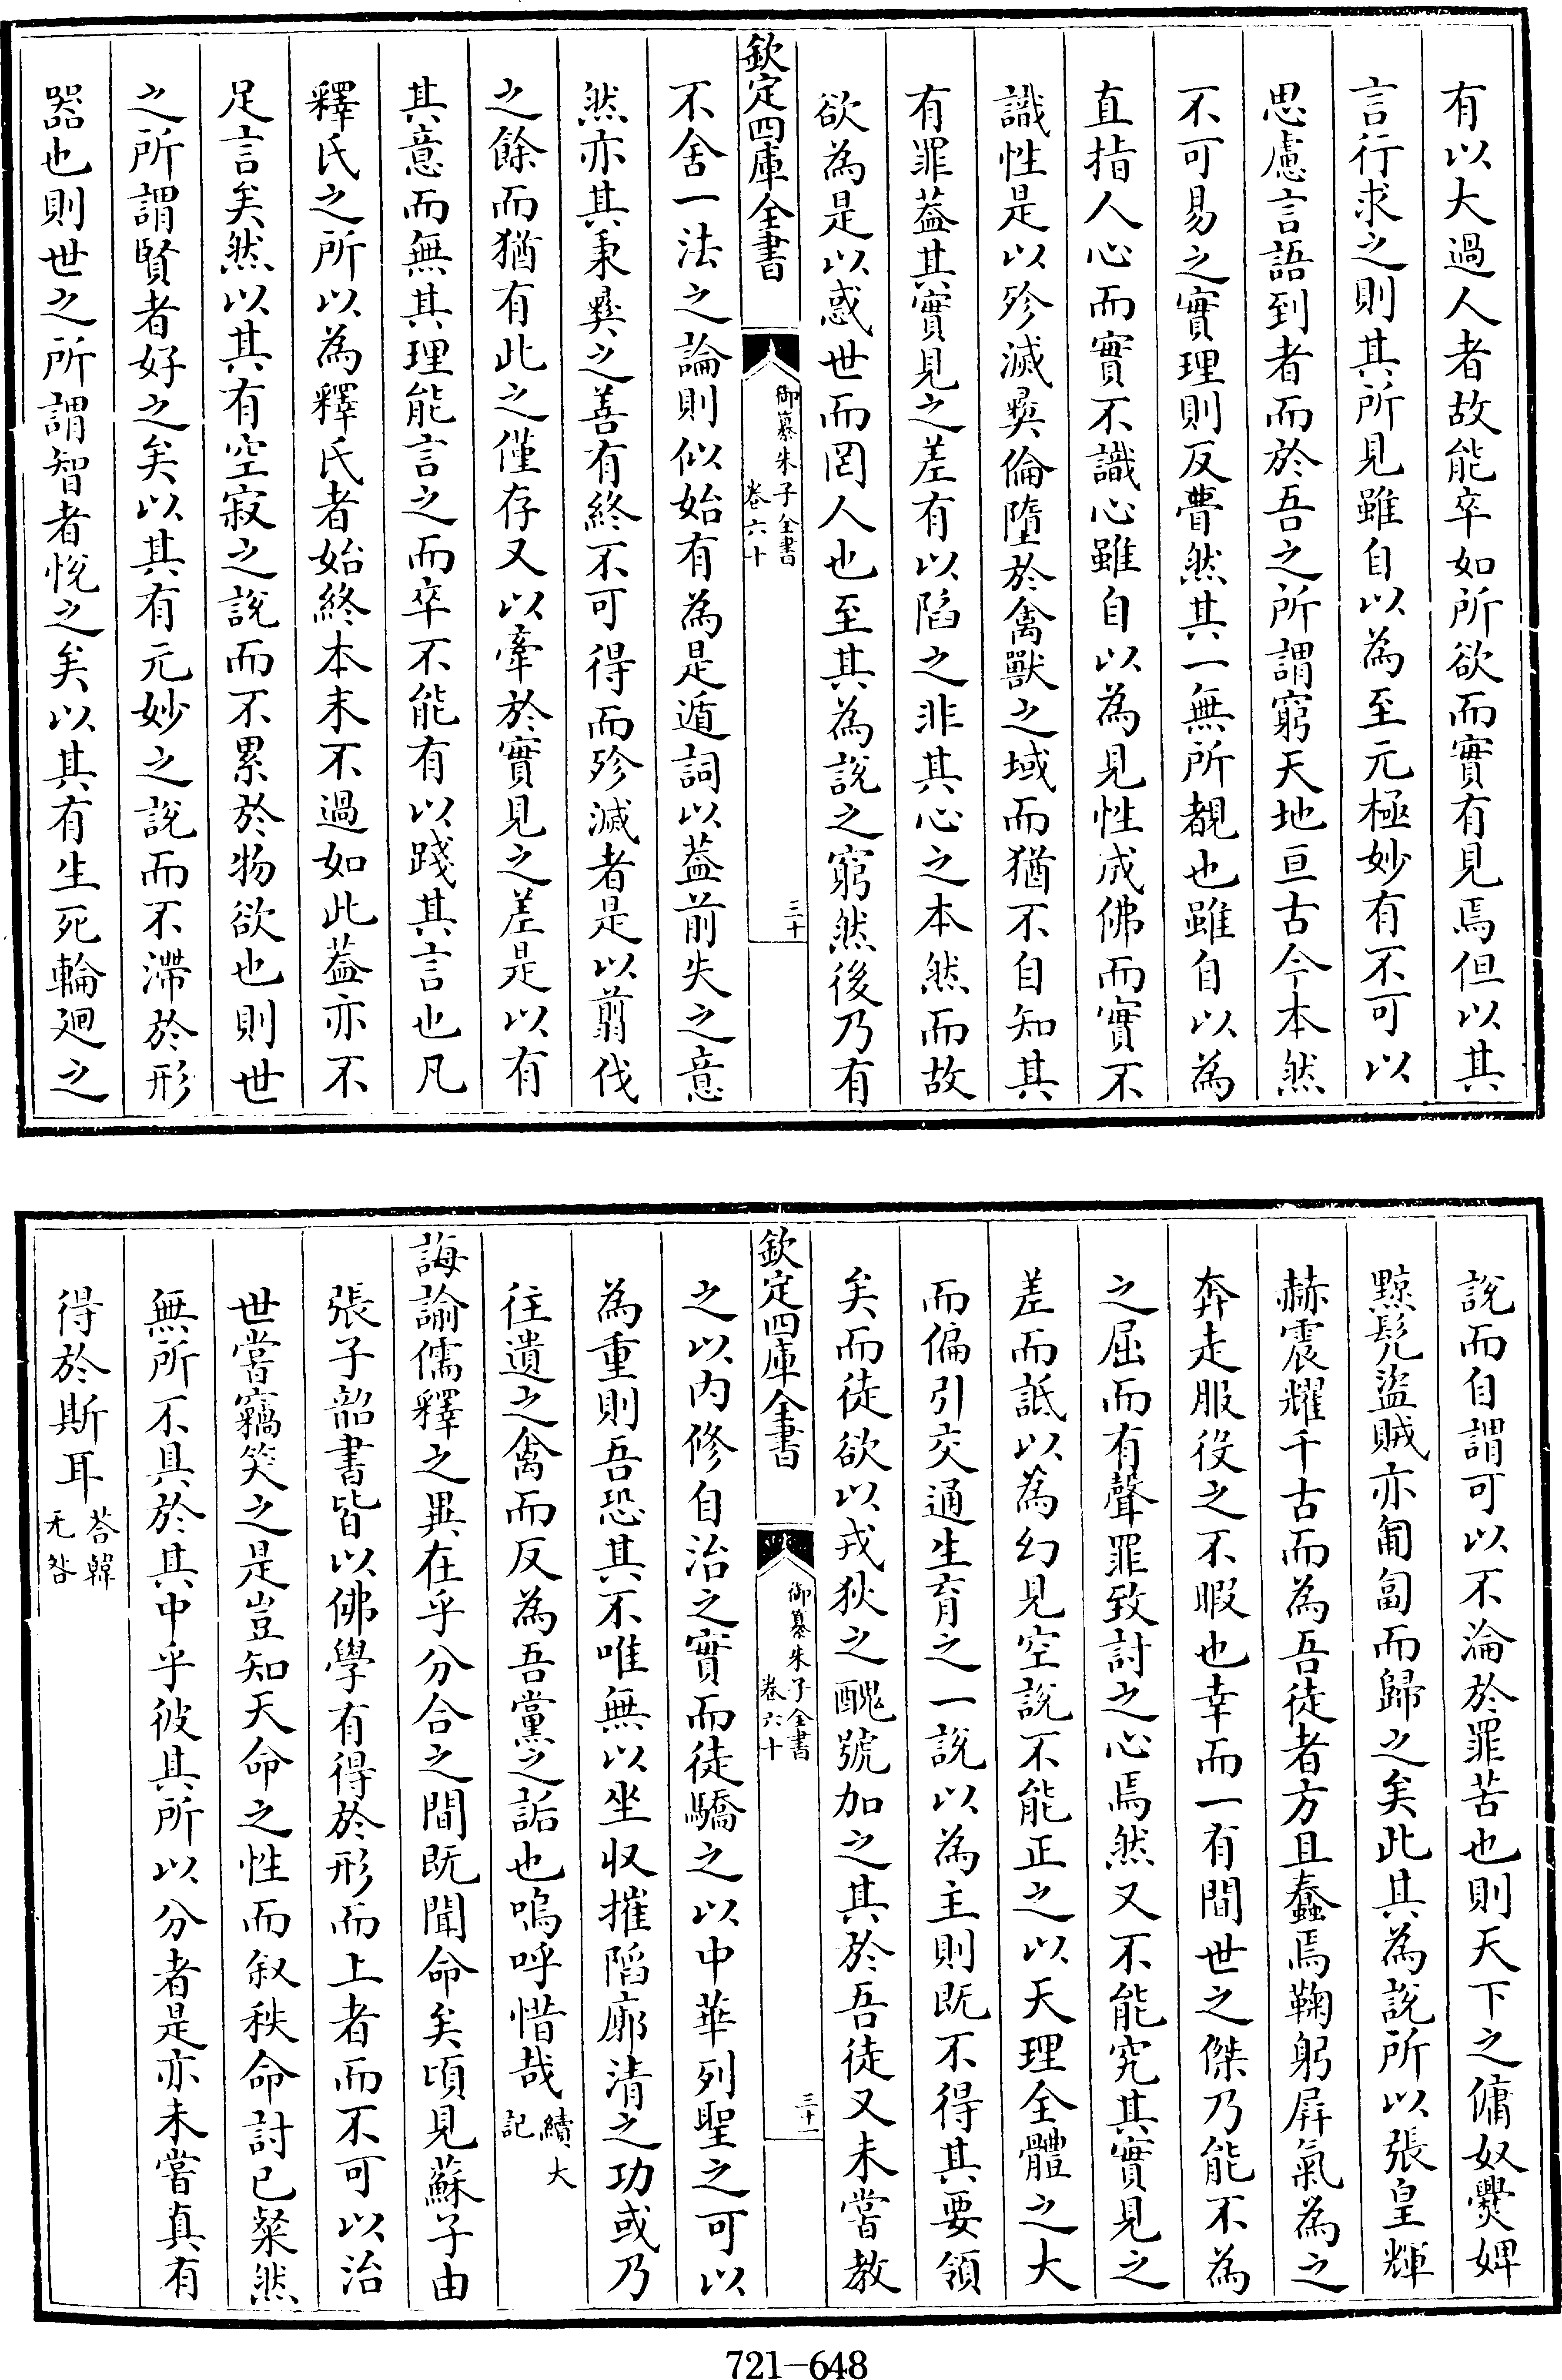 有以大過人者故能卒如所欲而實有見焉但以其
言行求之則其所見雖自以為至元極妙有不可以
思慮言語到者而於吾之所謂窮天地亘古今本然
不可易之實理則反瞢然其一無所覩也雖自以為
直指人心而實不識心雖自以為見性成佛而實不
識性是以殄滅彝倫墮於禽獸之域而猶不自知其
有罪葢其實見之差有以陷之非其心之本然而故
欲為是以惑世而罔人也至其為說之窮然後乃有
欽定四庫全書
御纂朱子全書
卷六十
三十
不舍一法之論則似始有為是遁詞以葢前失之意
然亦其秉彝之善有終不可得而殄滅者是以翦伐
之餘而猶有此之僅存又以牽於實見之差是以有
其意而無其理能言之而卒不能有以踐其言也凡
釋氏之所以為釋氏者始終本末不過如此葢亦不
足言矣然以其有空寂之說而不累於物欲也則世
之所謂賢者好之矣以其有元妙之說而不滯於形
器也則世之所謂智者悅之矣以其有生死輪廻之
說而自謂可以不淪於罪苦也則天下之傭奴爨婢
黥髠盜賊亦匍匐而歸之矣此其為說所以張皇輝
赫震耀千古而為吾徒者方且蠢焉鞠躬屏氣為之
奔走服役之不暇也幸而一有間世之傑乃能不為
之屈而有聲罪致討之心焉然又不能究其實見之
差而詆以為幻見空說不能正之以天理全體之大
而偏引交通生育之一說以為主則既不得其要領
矣而徒欲以戎狄之醜號加之其於吾徒又未嘗教
欽定四庫全書
御纂朱子全書
卷六十
三十一
之以内修自治之實而徒驕之以中華列聖之可以
為重則吾恐其不唯無以坐收摧陷廓清之功或乃
往遺之禽而反為吾黨之詬也嗚呼惜哉 續大記
誨諭儒釋之異在乎分合之間既聞命矣頃見蘇子由
張子韶書皆以佛學有得於形而上者而不可以治
世嘗竊笑之是豈知天命之性而叙秩命討已粲然
無所不具於其中乎彼其所以分者是亦未嘗真有
得於斯耳 荅韓无咎
721-648